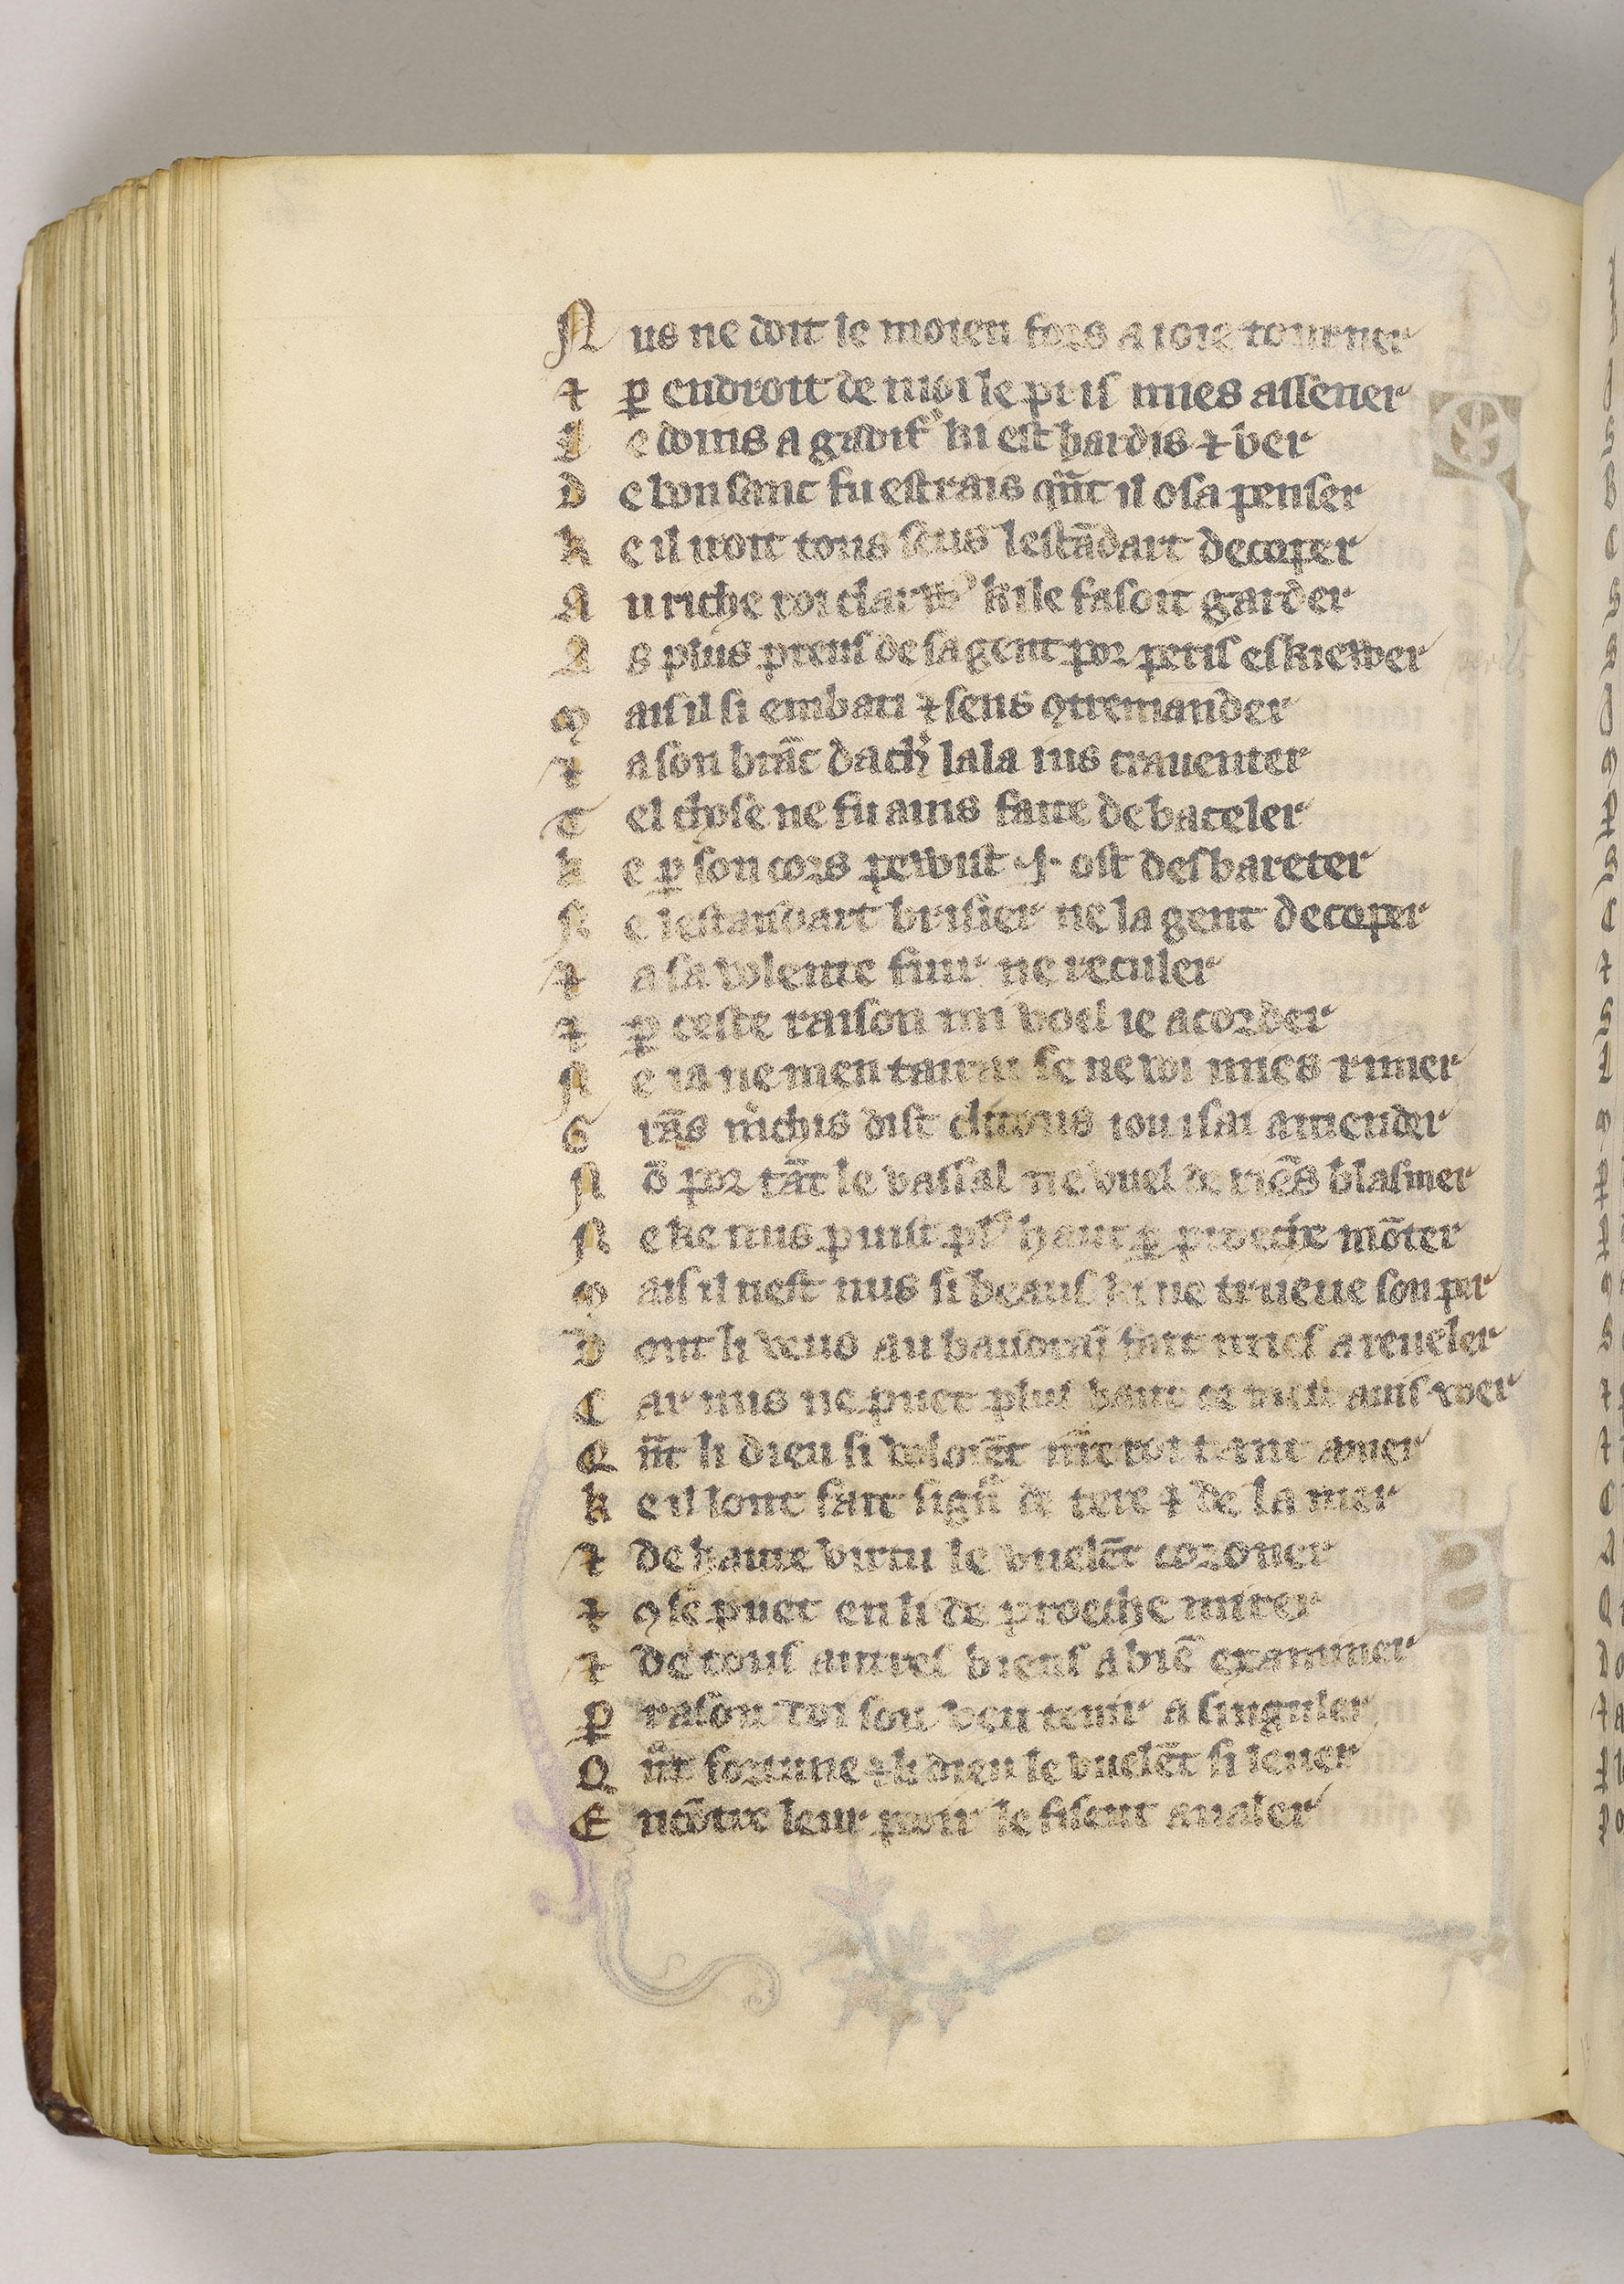 N us ne doit le moien fors a ioie tourner
⁊ ꝑ endroit de mi le pris mies assener
I e doins a gadif' ki est hardis ⁊ ber
D e bon sanc fu estrais qñt il osa penser
k e il iroit tous seus lestādart decoper
A u riche roi clar' kile fasoit garder
A s plus preus de sa gent por peril eskiewer
M ais il si embati ⁊ sens ꝯtremander
⁊ a son brāc dach' lala ius crauenter
T el chose ne fu ains faite de bateler
k e ꝑ son cors pewist .i. ost desbareter
N e lestandart brisier ne la gent decoper
⁊ a sa volente fuir ne reculer
⁊ ꝑ ceste raison mi voel ie acorder
N e ia ne men tairai se ne voi mies rimer
G rās m'chis dist iou isai amender
N ō por tāt le vassal ne vuel de riēs blasmer
N e ke nus puist pl' haut ꝑ proeche mōter
M ais il nest nus si beaus ki ne trueue son per
D ont li veus au baudraī fait mies a reueler
C ar nus ne puet plus haut ce mest auis voer
Q ñt li dieu si voloiēt roi tant amer
k e il lont fait sign' de tere ⁊ de la mer
⁊ de haute virtu le vuelēt coroner
⁊ ꝯ le puet en li de proeche mirer
⁊ de tous autres biens a biē examiner
P rason doi son veu tenir a singuler
Q ñt fortune ⁊ li dieu le vuelēt si leuer
E ncōtre leur pooir le fisent aualer